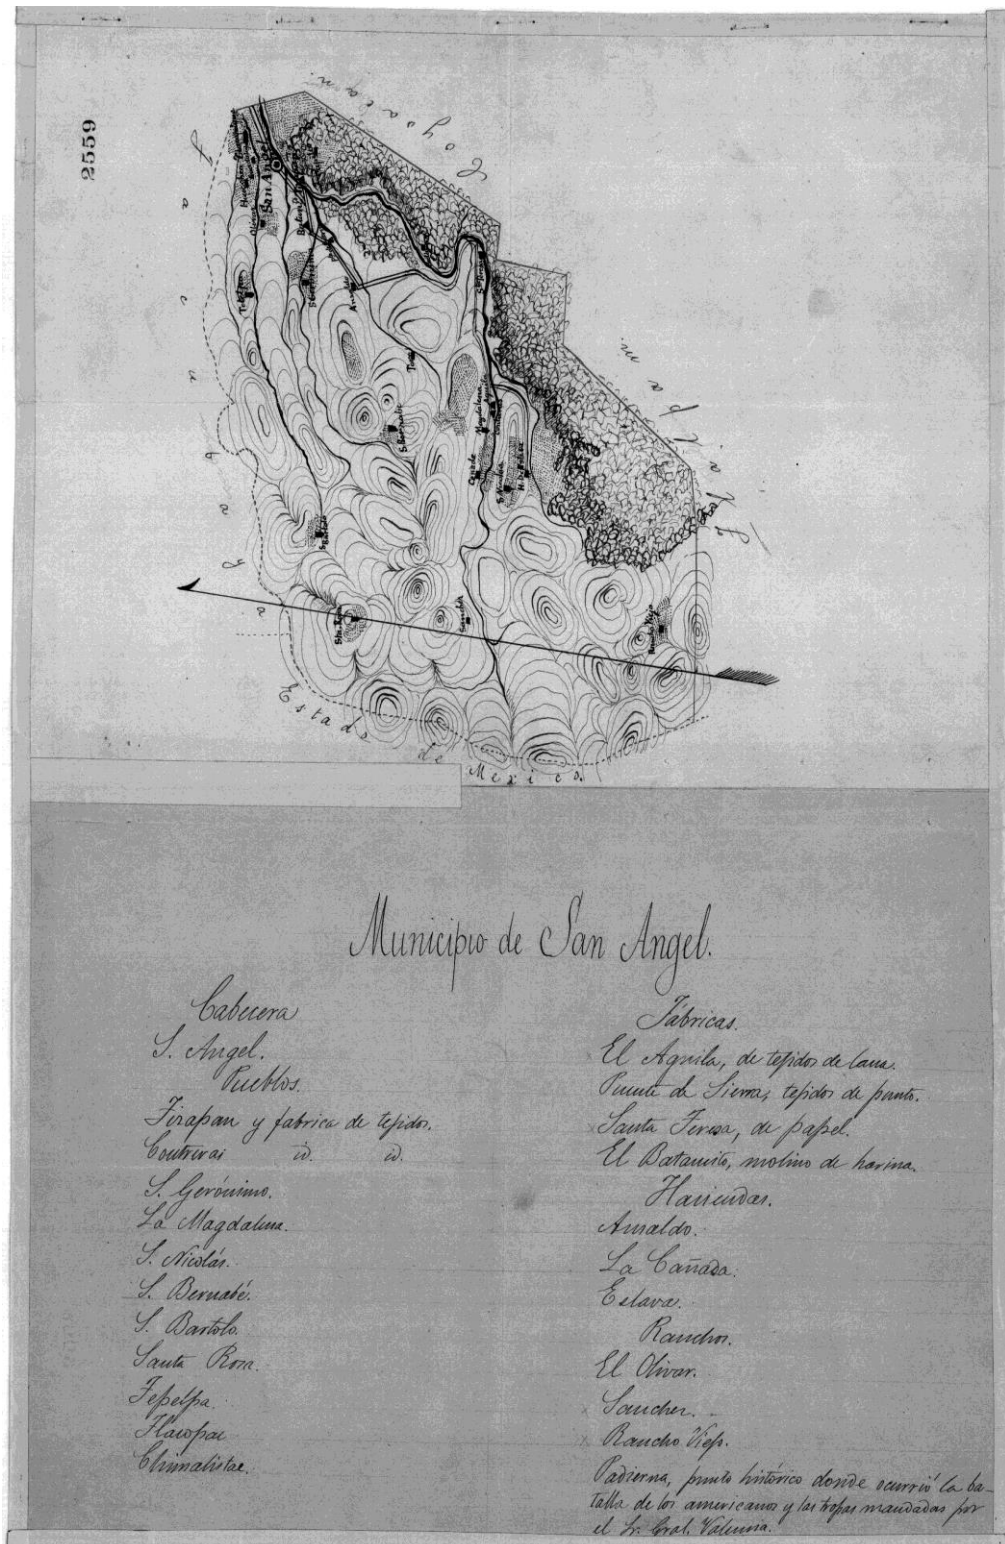 2559
Coyoacan.
Tlalpam.
Tacubaya
Estado de Mexico.
San Angel
S. Bernabe
S. Bartolo
Sta. Rosa
Magdalena
Cañada
S. Nicolas
Rancho Viejo
Municipio de San Angel.
Cabecera
S. Angel.
Pueblos.
Tizapan y fabrica de tejidos.
Contreras id. id.
S. Gerónimo.
La Magdalena.
S. Nicolás.
S. Bernabé.
S. Bartolo.
Santa Rosa.
Tetelpa.
Tlacopac
Chimalistac.
Fábricas.
El Aguila, de tejidos de lana.
Puente de Sierra, tejidos de punto.
Santa Teresa, de papel.
El Batancito, molino de harina.
Haciendas.
Ansaldo.
La Cañada.
Eslava.
Ranchos.
El Olivar.
Sanchez.
Rancho Viejo.
Padierna, punto histórico donde ocurrió la ba-
talla de los americanos y las tropas mandadas por
el Sr. Gral. Valencia.